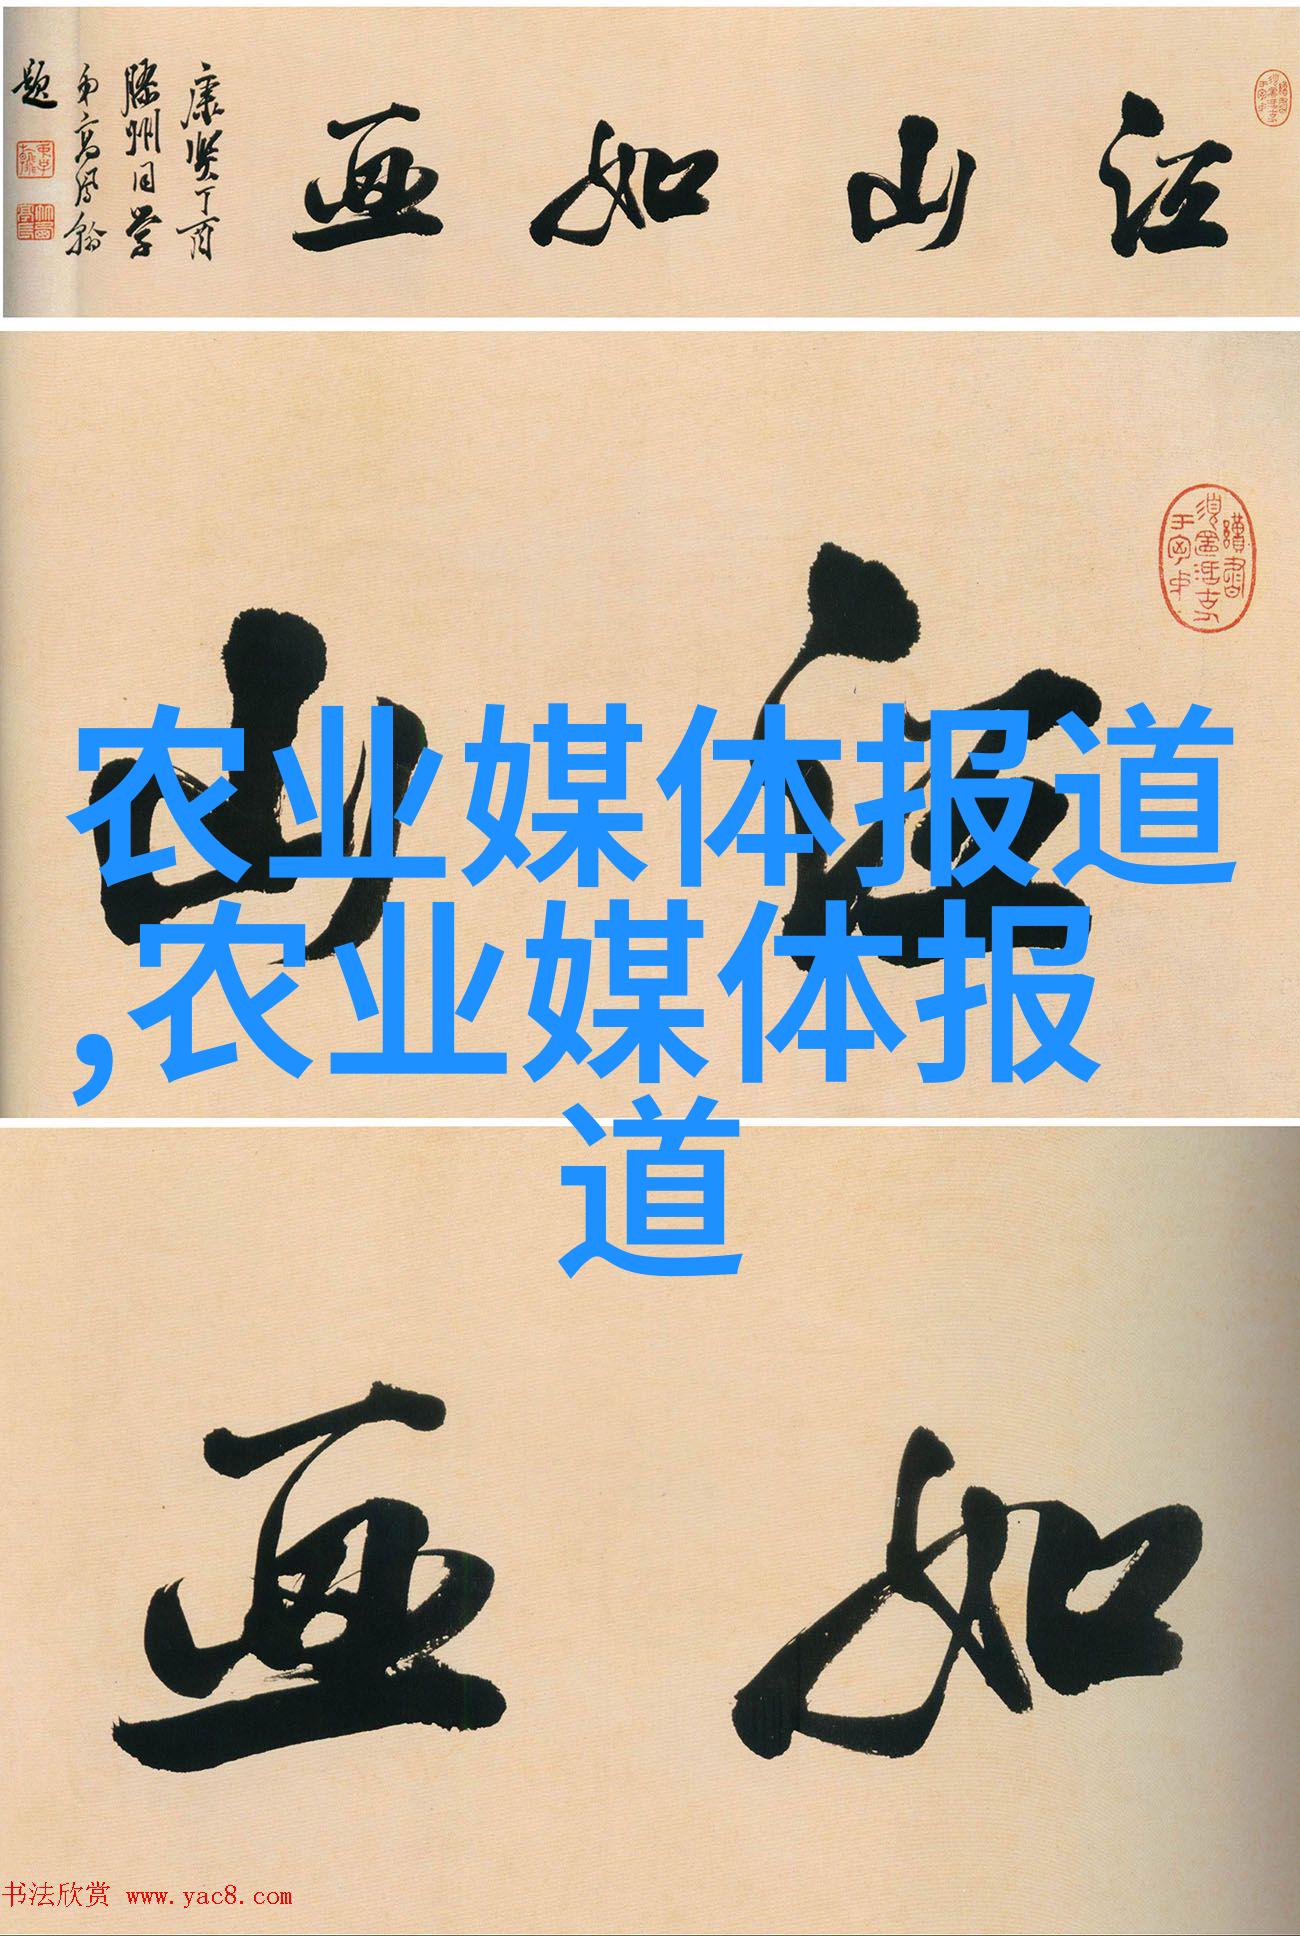 江山如画
康熙丁酉
胶州同学
弟高凤翰
题
江山
农业媒体报道
,农业媒体报
道
如画
书法欣赏 www.yac8.com